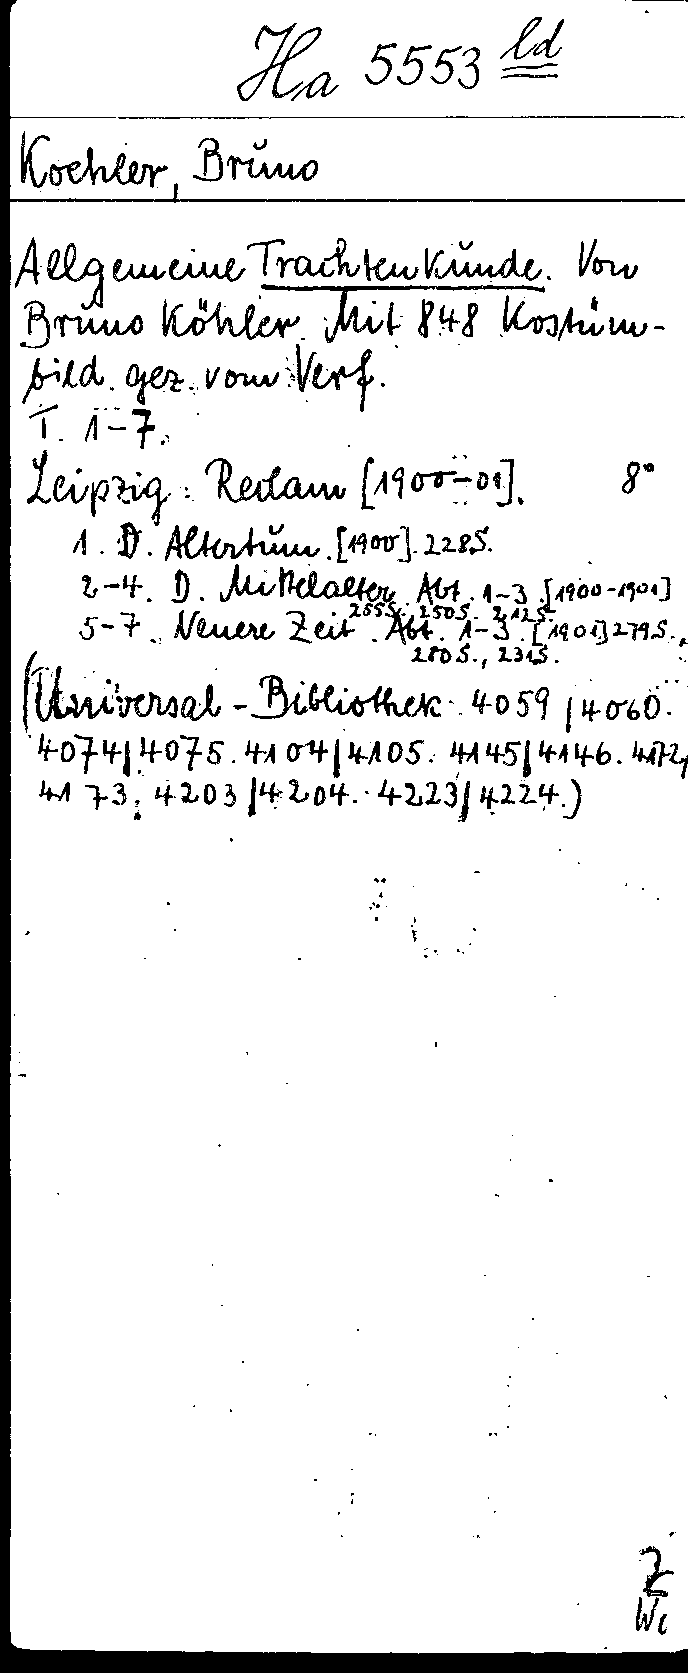 Ha 5553 ld
Koehler, Bruno
Allgemeine Trachtenkunde. Von
Bruno Köhler. Mit 848 Kostüm-
bild. gez. vom Verf.
T. 1-7.
Leipzig: Reclam [1900-01]. 8°
1. D. Altertum. [1900]. 228S.
2-4. D. Mittelalter. Abt. 1-3. [1900-1901]
255S. 250S. 212S.
5-7. Neuere Zeit. Abt. 1-3. [1901] 279S.,
280S., 231S.
(Universal-Bibliothek. 4059/4060.
4074/4075. 4104/4105. 4145/4146. 4172/
4173. 4203/4204. 4223/4224.)
Z